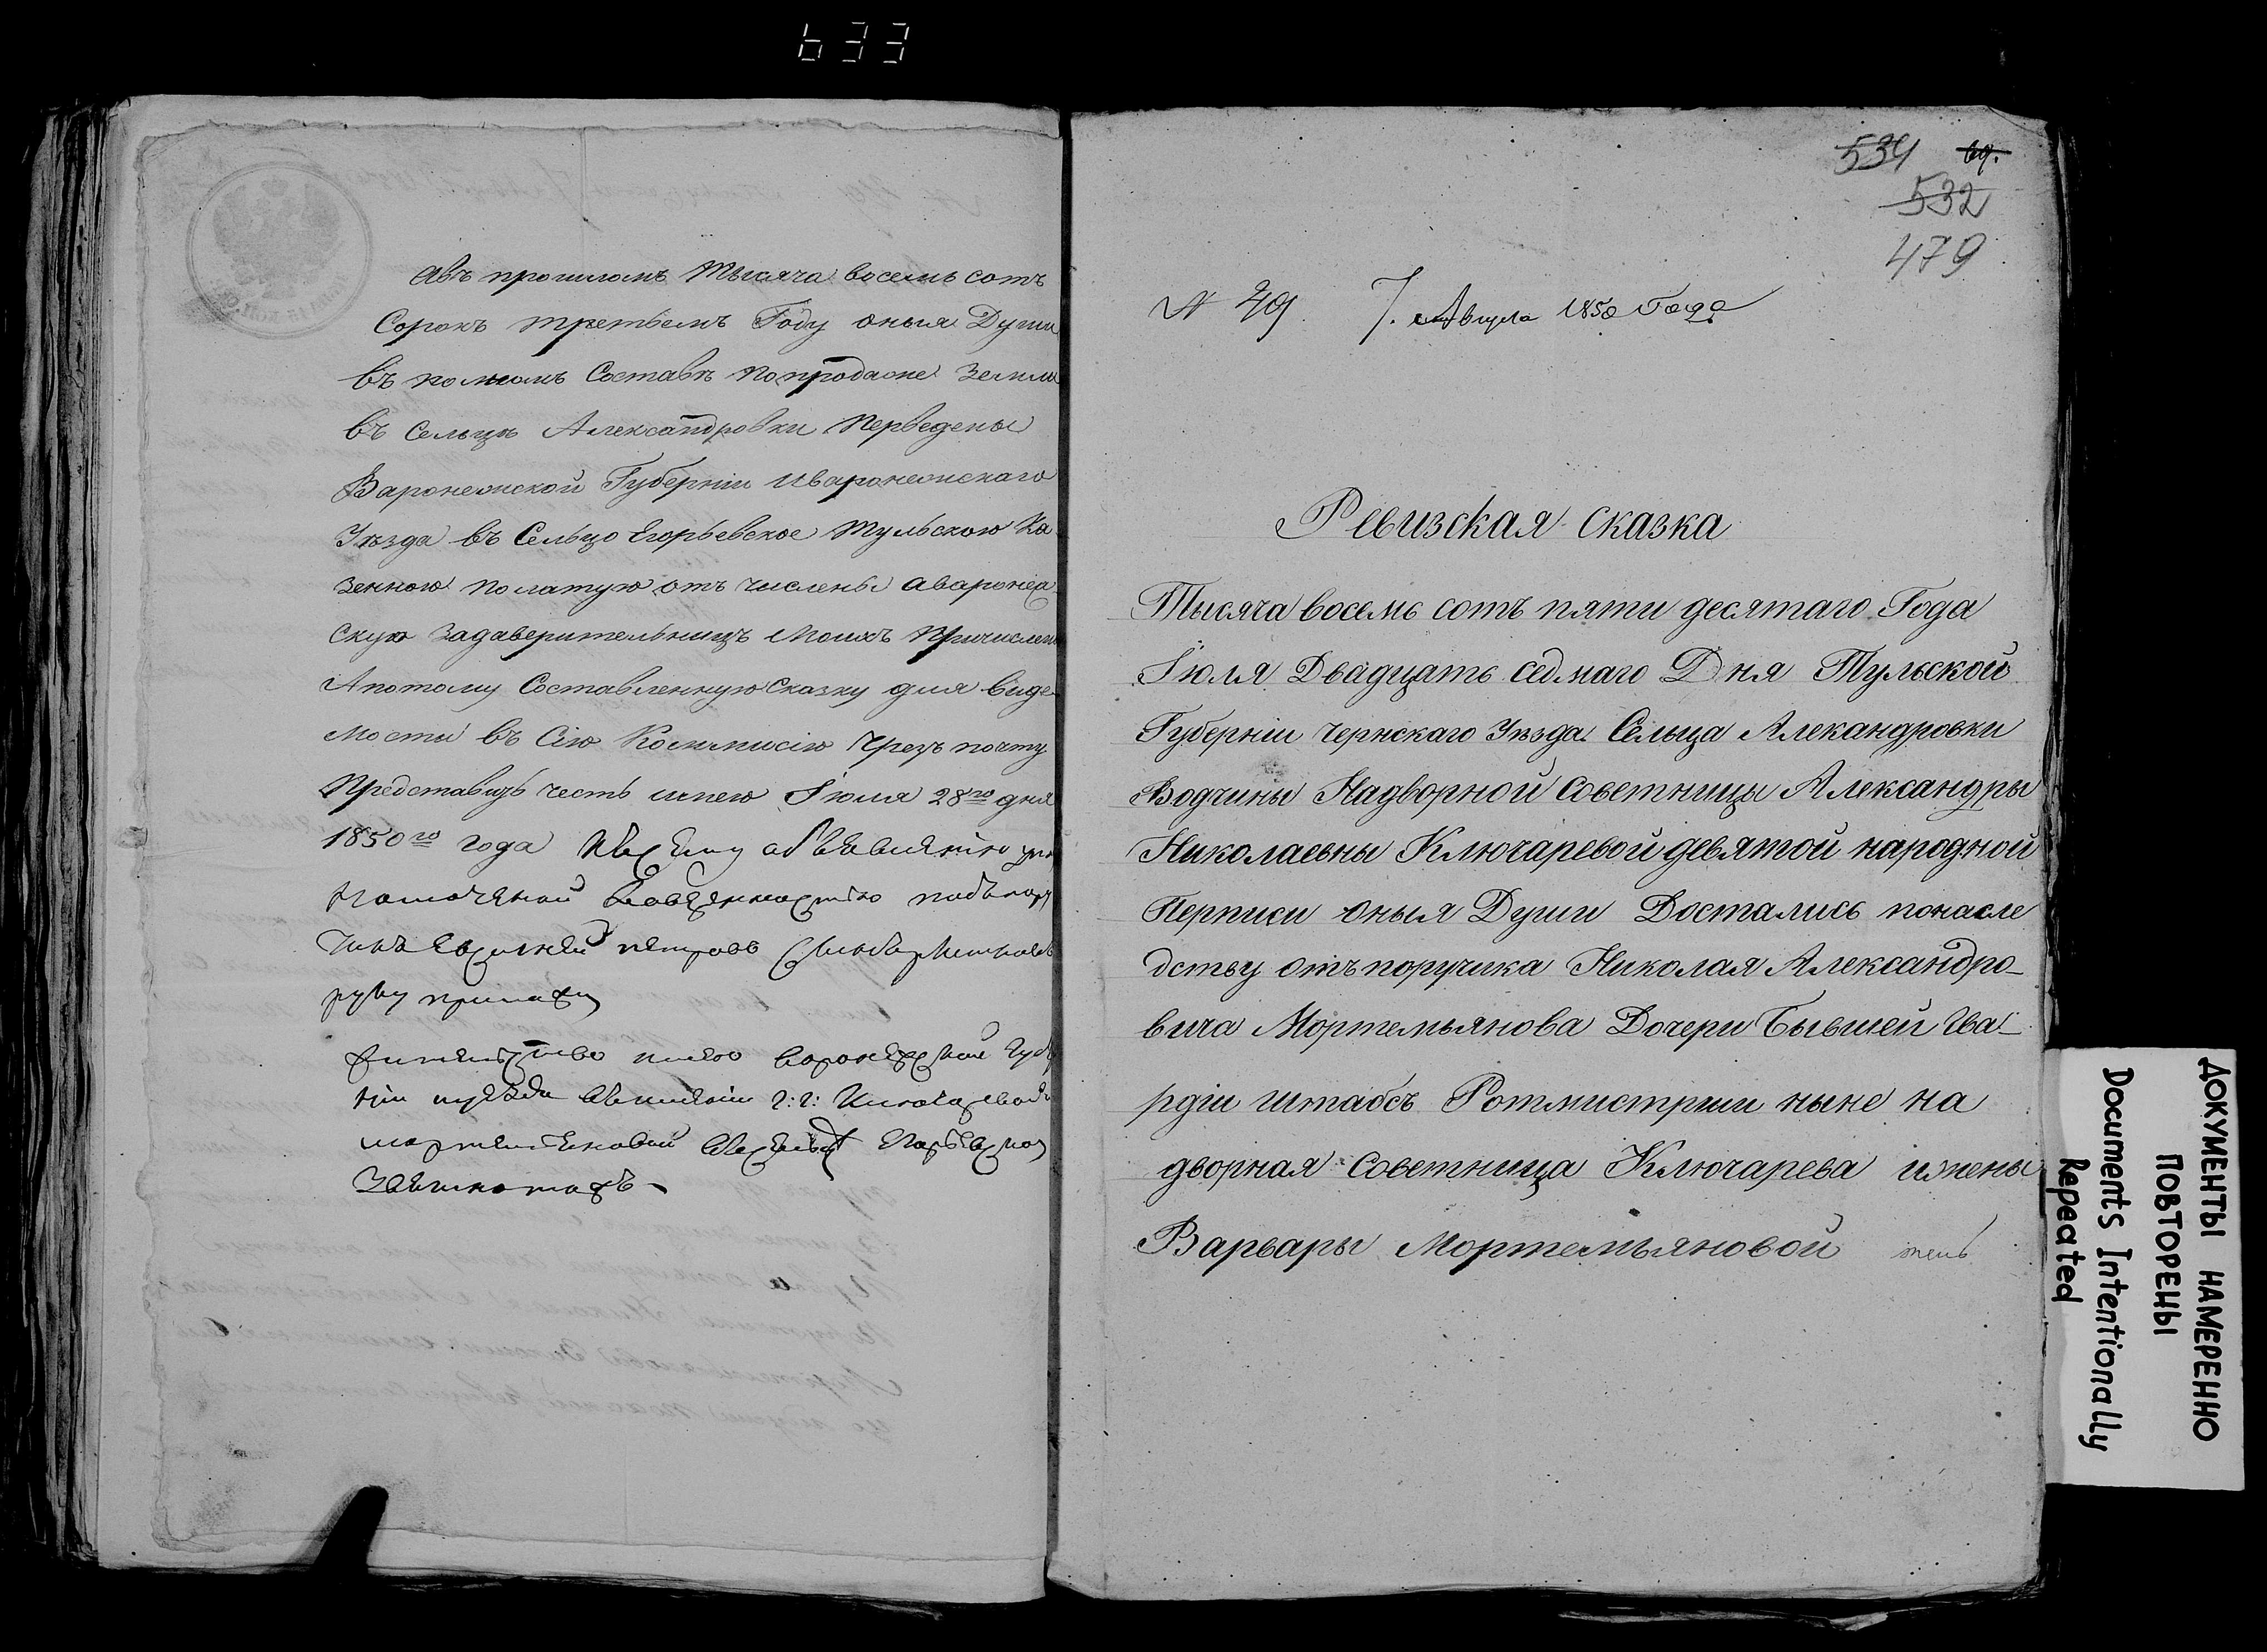 633
авъ прошломъ тысяча восемь сотъ
Сорокъ третьемъ Году оныя Души
въ полномъ Составѣ попродаже Земли
въ Сельцѣ Александровки Перведены
Варонежской Губерніи Иваронежскаго
Уѣзда въ Сельцо Егорьевское Тульскою Ка
зенною Полатую отъ числены аваронеж
скую Задаверительницъ Моихъ Причислен
Апотому Составленную Сказку для виде
мости въ Сію Коммисію чрезъ почту
Представить честь имею Іюля 28го дня
1850го года
руку приложи
жительство имею воронежской Губ
мортемьяновой
534 69.
532
479
N 49 7. Августа 1850 Года
Ревизская Сказка
Тысяча восемь сотъ пяти десятаго Года
Іюля Двадцать седмаго Дня Тульской
Губерніи Чернскаго Уѣзда Сельца Алекандровки
Водчины Надворной Советницы Александры
Николаевны Ключаревой девятой народной
Переписи оныя Души Достались понасле
дству отъ поручика Николая Александро_
вича Мортемьянова Дочери Бывшей Гва_
рдіи штабсъ Ротмистрши ныне на
дворная Советница Ключарева ижены
Варвары Мортемьяновой
ДОКУМЕНТЫ НАМЕРЕННО
ПОВТОРЕНЫ
Documents Intentionally
Repeated